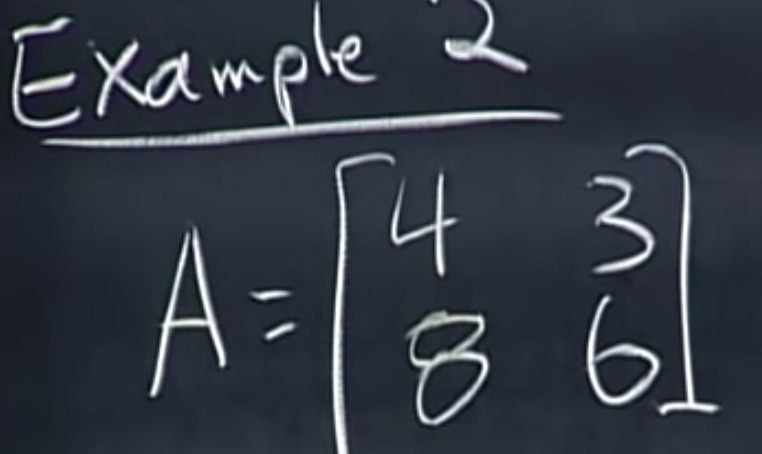 Example 2
A = [4 3
8 6]